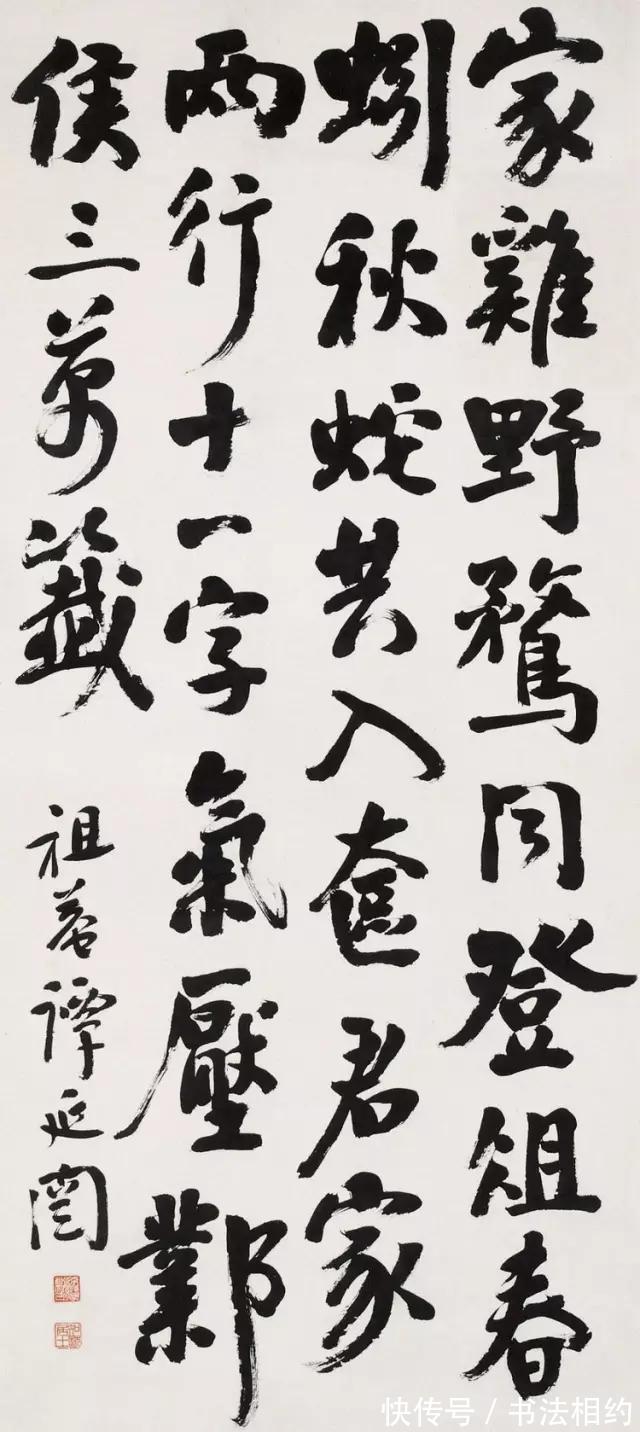 家雞野鶩同登俎春
蚓秋蛇共入奩君家
兩行十二字氣壓鄴
侯三萬籤
祖菴譚延闓
快传号/书法相约